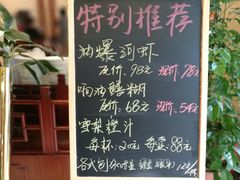 特别推荐
油爆河虾
原价:98元 现价:78元
响油鳝糊
原价:68元 现价:54元
雪梨橙汁
每杯:20元 每壶:88元
各式刨冰